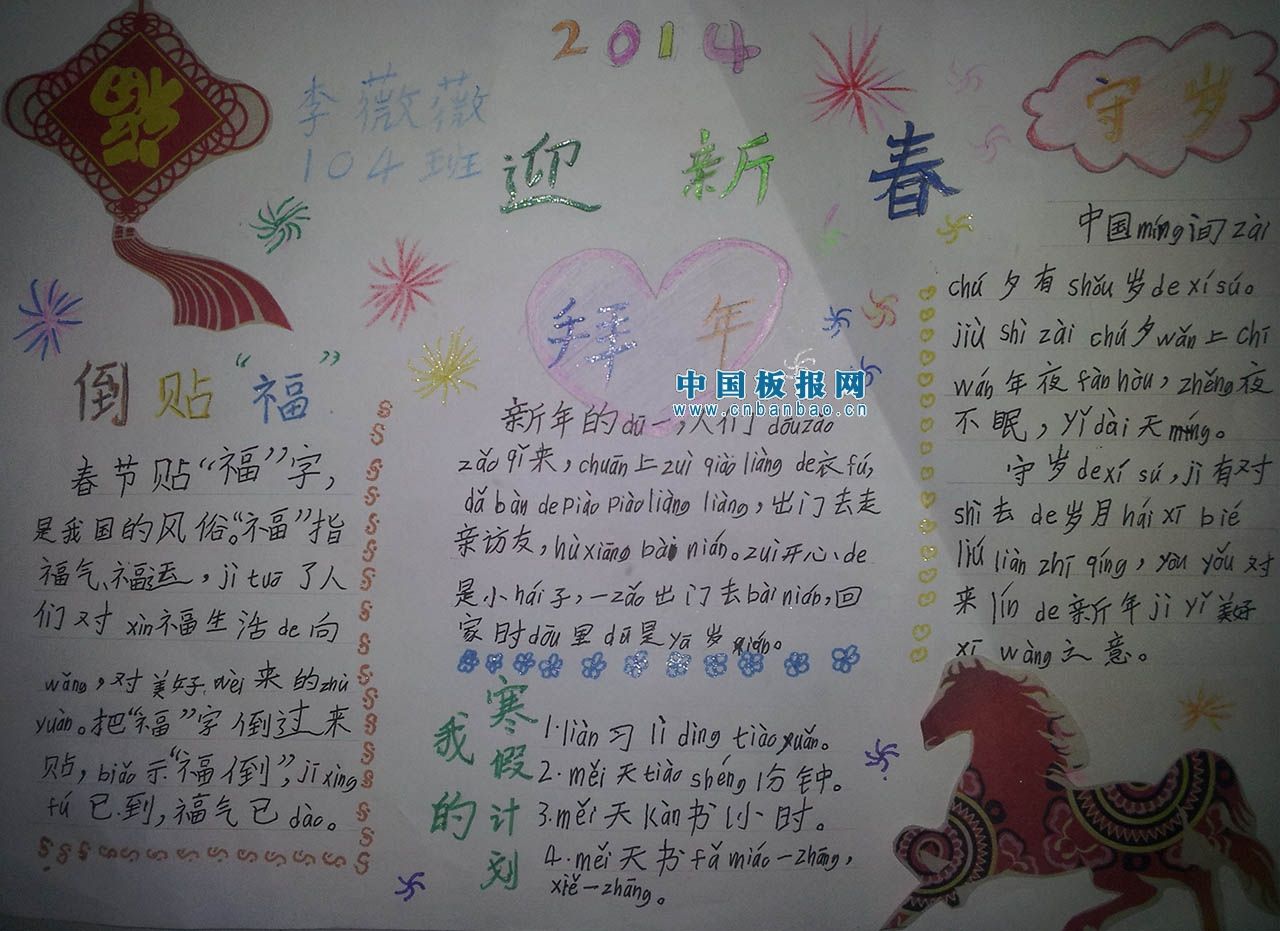 福
李薇薇
104班
2014
迎新春
倒贴“福”
春节贴“福”字，
是我国的风俗。“福”指
福气、福运，jì tuō了人
们对xìn福生活de向
wǎng，对美好wèi来的zhù
yuàn。把“福”字倒过来
贴，biǎo示“福倒”，jī xìng
fú已到，福气已dào。
拜年
中国板报网
www.cnbanbao.cn
新年的dū一，人们dōuzǎo
zǎo qǐ来，chuān上zuì qiào liàng de衣fú，
dǎ bàn de piào piào liàng liàng，出门去走
亲访友，hù xiāng bài nián。zuì开心de
是小hái子，一zǎo出门去bài nián，回
家时dōu里dū是yā岁qián。
我的寒假计划
1.liàn习lì dìng tiào yuǎn。
2.měi天tiào shéng1分钟。
3.měi天kàn书1小时。
4.měi天书fǎ miáo一zhāng，
xiě一zhāng。
守岁
中国míng间zài
chú夕有shǒu岁de xí sú。
jiù shì zài chú夕wǎn上chī
wán年夜fàn hòu，zhěng夜
不眠，yǐ dài天míng。
守岁de xí sú，jì有对
shì去de岁月hái xī bié
liú liàn zhī qíng，yòu yǒu对
来lín de新年jì yǐ美好
xī wàng之意。